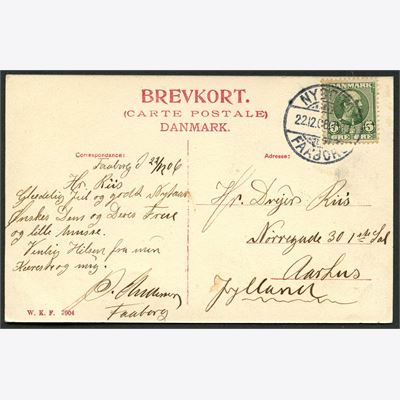 BREVKORT.
(CARTE POSTALE)
DANMARK.
Correspondance:
Faaborg d 22/12 06
Hr. Riis
Glædelig Jul og godt Nytaar
ønskes Dem og Deres Frue
og lille
Venlig Hilsen fra min
Kæreste og mig.
P. Andersen
Faaborg
W. K. F. 2904
Adresse:
Hr. Drejer Riis
Nørregade 30 1ste Sal
Aarhus
Jylland
DANMARK
5 5
ØRE ØRE
NY
22.12.06
FAABORG